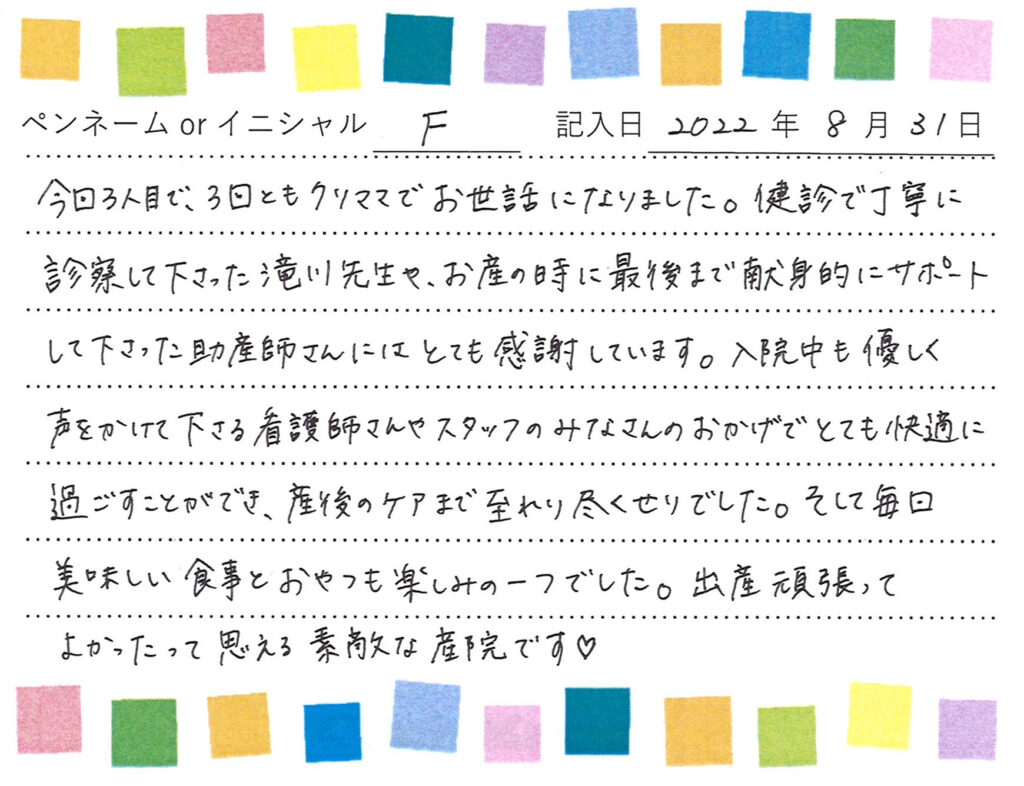 ペンネーム or イニシャル F 記入日 2022 年 8 月 31 日
今回3人目で、3回ともクリママでお世話になりました。健診で丁寧に
診察して下さった滝川先生や、お産の時に最後まで献身的にサポート
して下さった助産師さんにはとても感謝しています。入院中も優しく
声をかけて下さる看護師さんやスタッフのみなさんのおかげでとても快適に
過ごすことができ、産後のケアまで至れり尽くせりでした。そして毎日
美味しい食事とおやつも楽しみの一つでした。出産頑張って
よかったって思える素敵な産院です♡